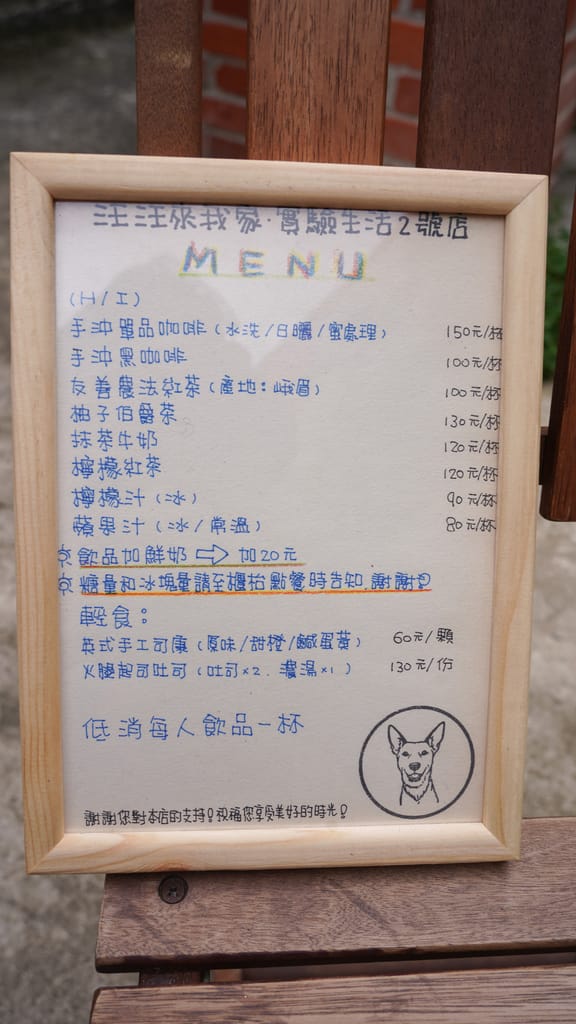 汪汪來我家·實驗生活2號店
MENU
(H/I)
手沖單品咖啡(水洗/日曬/蜜處理) 150元/杯
手沖黑咖啡 100元/杯
友善農法紅茶(產地:峨眉) 100元/杯
柚子伯爵茶 130元/杯
抹茶牛奶 120元/杯
檸檬紅茶 120元/杯
檸檬汁(冰) 90元/杯
蘋果汁(冰/常溫) 80元/杯
※飲品加鮮奶⇨加20元
※糖量和冰塊量請至櫃抬點餐時告知.謝謝
輕食:
英式手工司康(原味/甜橙/鹹蛋黃) 60元/顆
火腿起司吐司(吐司×2.濃湯×1) 130元/份
低消每人飲品一杯
謝謝您對本店的支持!祝福您享受美好的時光!